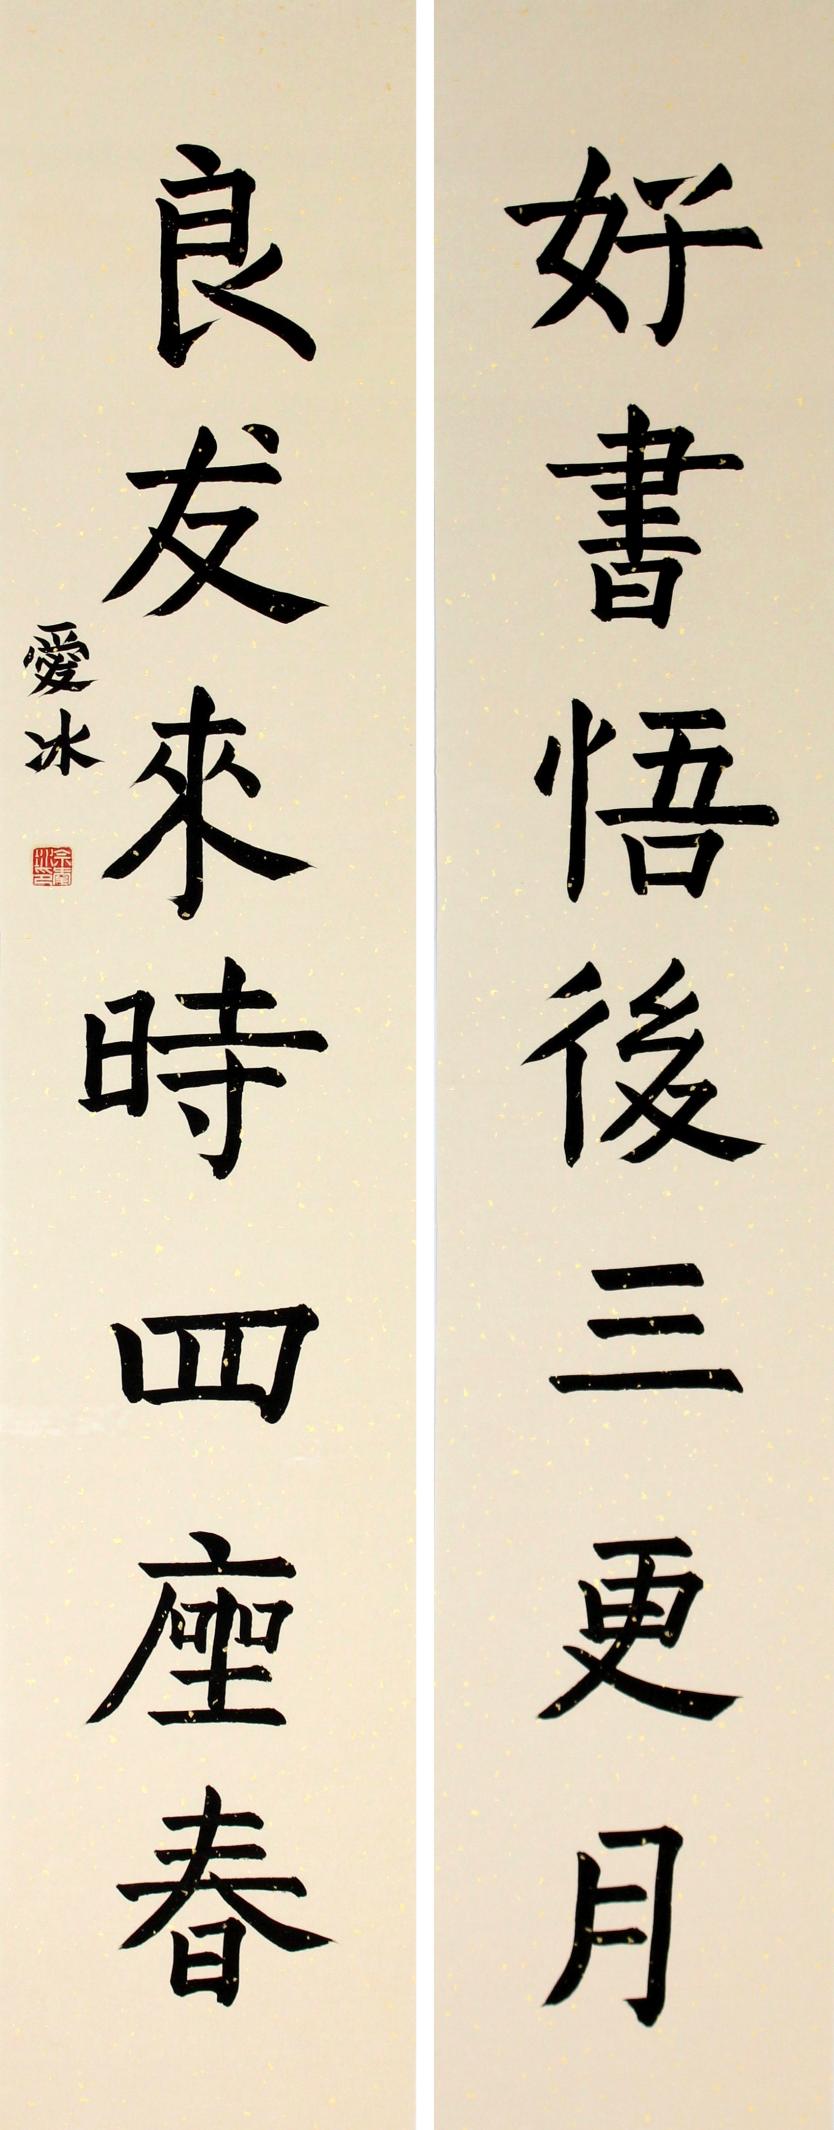 好書悟後三更月
良友來時四座春
愛冰